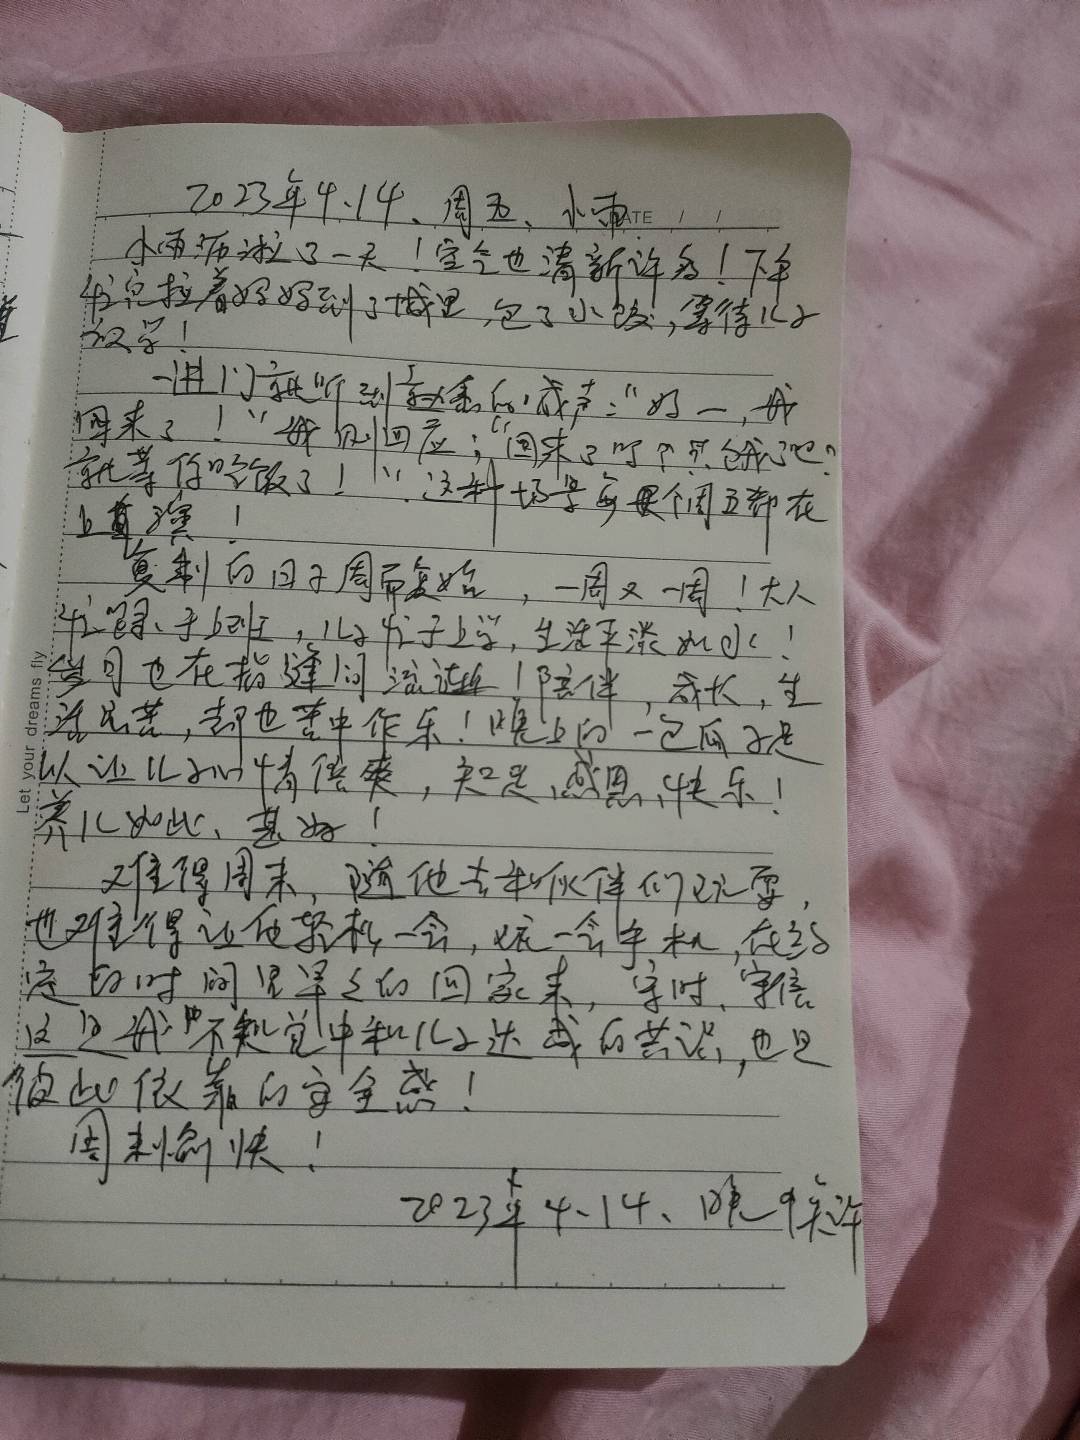 2023年4.14、周五、小雨
DATE / /
小雨沥沥了一天！空气也清新许多！下午
忙完拉着妈妈到了城里，包了小饺，等待儿子
放学！
一进门就听到熟悉的喊声："妈一，我
回来了！"我则回应："回来了呀？
就等你吃饭了！"这种场景每周五都在
上演！
复制的日子周而复始，一周又一周！大人
忙于上班，儿子忙于上学，生活平淡如水！
也在指缝间流逝！陪伴，成长，生
活虽苦，却也苦中作乐！晚上的一包瓜子足
以让儿子心情倍爽，知足、感恩、快乐！
养儿如此、甚好！
难得周末，随他去和伙伴们玩耍，
也难得让他轻松一会，玩一会手机，在约
定的时间里早早的回家来，守时、守信
这是我不知觉中和儿子达成的共识，也是
彼此依靠的安全感！
周末愉快！
2023年4.14、晚
Let your dreams fly